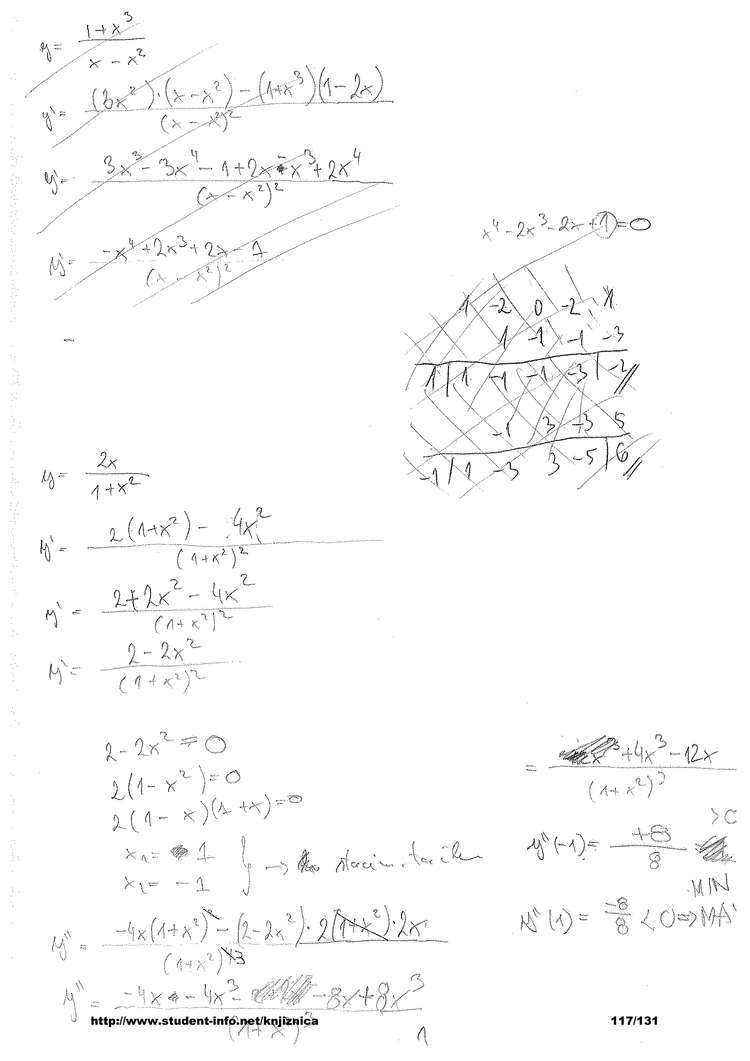 y = \frac{1+x^3}{x-x^2}
y' = \frac{(3x^2)\cdot(x-x^2)-(1+x^3)(1-2x)}{(x-x^2)^2}
y' = \frac{3x^3-3x^4-1+2x-x^3+2x^4}{(x-x^2)^2}
y' = \frac{-x^4+2x^3+2x-1}{(x-x^2)^2}
x^4-2x^3-2x+1=0
1 -2 0 -2 1
1 -1 -1 -3
1 | 1 -1 -1 -3 | -2
-1 3 +3 5
-1 | 1 -3 3 -5 | 6
y = \frac{2x}{1+x^2}
y' = \frac{2(1+x^2)-4x^2}{(1+x^2)^2}
y' = \frac{2+2x^2-4x^2}{(1+x^2)^2}
y' = \frac{2-2x^2}{(1+x^2)^2}
2-2x^2=0
2(1-x^2)=0
2(1-x)(1+x)=0
x_1 = 1
x_2 = -1
y'' = \frac{-4x(1+x^2)^2-(2-2x^2)\cdot 2(1+x^2)\cdot 2x}{(1+x^2)^{43}}
y'' = \frac{-4x-4x^3-8x+8x^3}{(1+x)^3}
= \frac{+4x^3-12x}{(1+x^2)^3}
y''(-1) = \frac{+8}{8} >0
MIN
y''(1) = \frac{-8}{8} <0 => MA
http://www.student-info.net/knjiznica
117/131